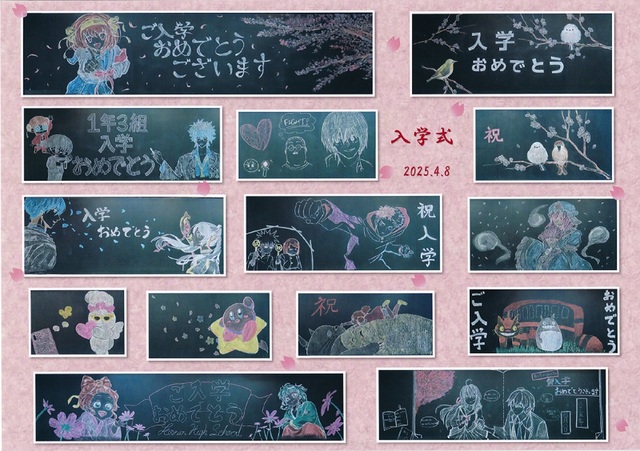 ご入学
おめでとう
ございます
入学
おめでとう
1年3組
入学
おめでとう
FIGHT!
入学式
2025.4.8
祝
入学
おめでとう
祝
入学
祝
ご入学
おめでとう
ご入学
おめでとう
High School
おめでとうございます